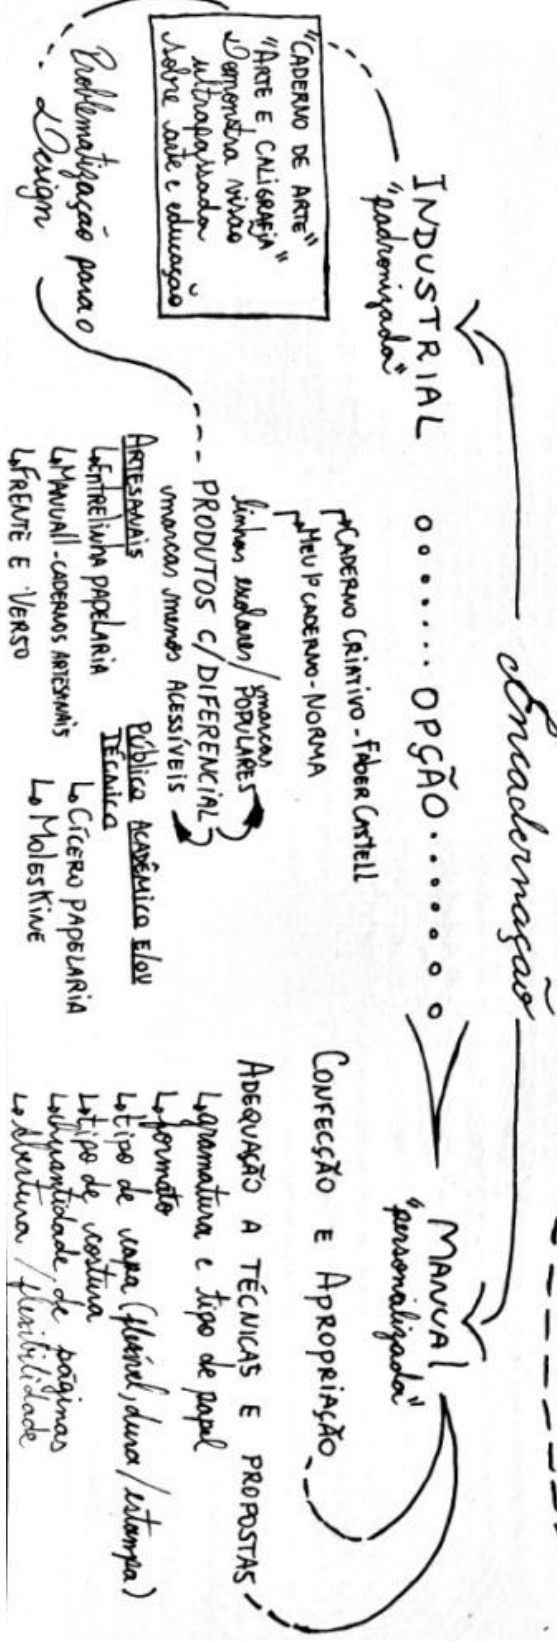 Encadernação
INDUSTRIAL
"padronizada"
OPÇÃO
MANUAL
"personalizada"
"CADERNO DE ARTE"
"ARTE E CALIGRAFIA"
Demonstra visão
ultrapassada
sobre arte e educação
Problematização para o
Design
CADERNO CRIATIVO - FABER CASTELL
MEU 1º CADERNO - NORMA
linhas escolares / marcas POPULARES
PRODUTOS C/ DIFERENCIAL
marcas menos ACESSÍVEIS
ARTESANAIS
↳ ENTRELINHA PAPELARIA
↳ MANUALL - CADERNOS ARTESANAIS
↳ FRENTE E VERSO
PÚBLICO ACADÊMICO E/OU
TÉCNICO
↳ CÍCERO PAPELARIA
↳ MOLESKINE
CONFECÇÃO E APROPRIAÇÃO
ADEQUAÇÃO A TÉCNICAS E PROPOSTAS
↳ gramatura e tipo de papel
↳ formato
↳ tipo de capa (flexível, dura / estampa)
↳ tipo de costura
↳ quantidade de páginas
↳ abertura / flexibilidade